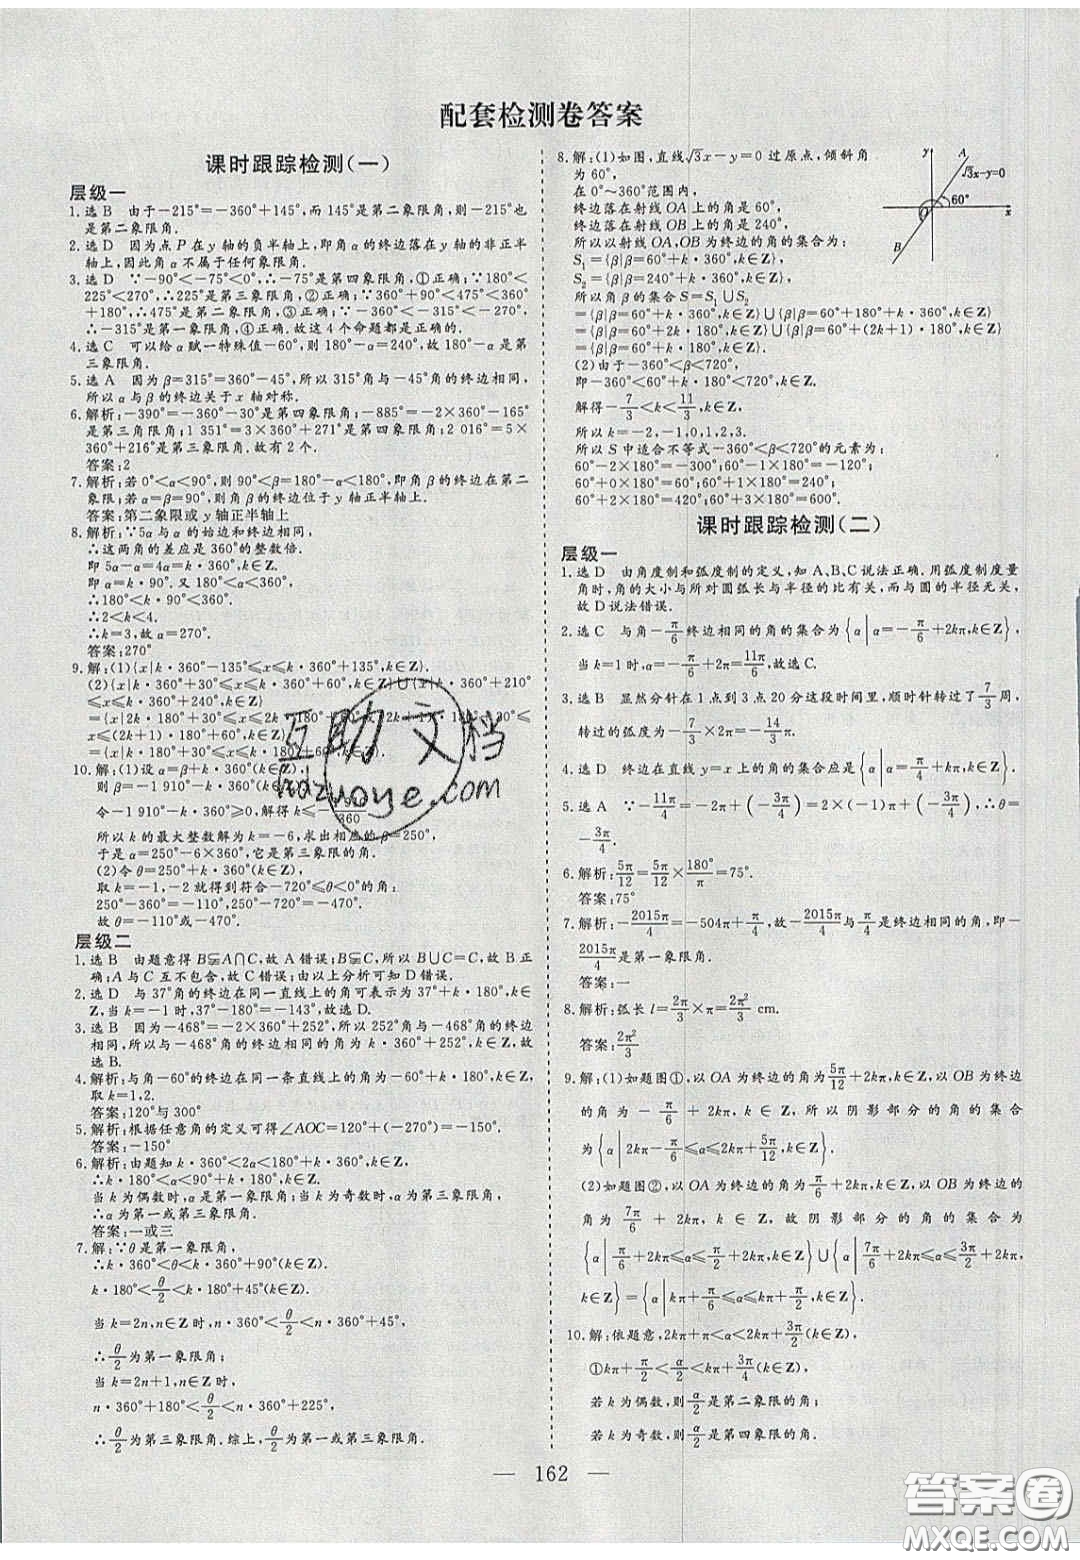 配套检测卷答案
课时跟踪检测(一)
层级一
1.选B 由于-215°=-360°+145°,而145°是第二象限角,则-215°也
是第二象限角.
2.选D 因为点P在y轴的负半轴上,即角α的终边落在y轴的非正半
轴上,因此角α不属于任何象限角.
3.选D ∵-90°<-75°<0°,∴-75°是第四象限角,①正确;∵180°<
225°<270°,∴225°是第三象限角,②正确;∵360°+90°<475°<360°
+180°,∴475°是第二象限角,③正确;∵-360°<-315°<-270°,
∴-315°是第一象限角,④正确.故这4个命题都是正确的.
4.选C 可以给α赋一特殊值-60°,则180°-α=240°,故180°-α是第
三象限角.
5.选A 因为β=315°=360°-45°,所以315°角与-45°角的终边相同,
所以α与β的终边关于x轴对称.
6.解析:-390°=-360°-30°是第四象限角;-885°=-2×360°-165°
是第三角限角;1 351°=3×360°+271°是第四象限角;2 016°=5×
360°+216°是第三象限角.故有2个.
答案:2
7.解析:若0°<α<90°,则90°<β=α+90°<180°,即角β的终边在第二
象限;若α=90°,则角β的终边位于y轴正半轴上.
答案:第二象限或y轴正半轴上
8.解析:∵5α与α的始边和终边相同,
∴这两角的差应是360°的整数倍.
即5α-α=4α=k·360°,k∈Z.
即α=k·90°.又180°<α<360°,
∴180°<k·90°<360°.
∴2<k<4.
∴k=3,故α=270°.
答案:270°
9.解:(1){x|k·360°-135°≤x≤k·360°+135°,k∈Z}.
(2){x|k·360°+30°≤x≤k·360°+60°,k∈Z}∪{x|k·360°+210°
≤x≤k·360°+240°,k∈Z}
={x|2k·180°+30°≤x≤2k·180°+60°,k∈Z}∪{x|(2k+1)·180°+30°
≤x≤(2k+1)·180°+60°,k∈Z}
={x|k·180°+30°≤x≤k·180°+60°,k∈Z}.
10.解:(1)设α=β+k·360°(k∈Z),
则β=-1 910°-k·360°(k∈Z).
令-1 910°-k·360°≥0,解得k≤
所以k的最大整数解为k=-6,求出相应的β=250°,
于是α=250°-6×360°,它是第三象限角.
(2)令θ=250°+k·360°(k∈Z),
取k=-1,-2就得到符合-720°≤θ<0°的角.
250°-360°=-110°,250°-720°=-470°.
故θ=-110°或-470°.
层级二
1.选B 由题意得B⫋A∩C,故A错误;B⫋C,所以B∪C=C,故B正
确;A与C互不包含,故C错误;由以上分析可知D错误.
2.选D 与37°角的终边在同一直线上的角可表示为37°+k·180°,k∈
Z,当k=-1时,37°-180°=-143°,故选D.
3.选B 因为-468°=-2×360°+252°,所以252°角与-468°角的终边
相同,所以与-468°角的终边相同的角为k·360°+252°,k∈Z,故
选B.
4.解析:与角-60°的终边在同一条直线上的角可表示为β=-60°+k·180°,k∈Z.
取k=1,2.
答案:120°与300°
5.解析:根据任意角的定义可得∠AOC=120°+(-270°)=-150°.
答案:-150°
6.解析:由题知k·360°<2α<180°+k·360°,k∈Z,
∴k·180°<α<90°+k·180°,k∈Z.
当k为偶数时,α是第一象限角;当k为奇数时,α为第三象限角,
∴α为第一或第三象限角.
答案:一或三
7.解:∵θ是第一象限角,
∴k·360°<θ<k·360°+90°(k∈Z),
k·180°<θ/2<k·180°+45°(k∈Z).
当k=2n,n∈Z时,n·360°<θ/2<n·360°+45°,
∴θ/2为第一象限角;
当k=2n+1,n∈Z时,
n·360°+180°<θ/2<n·360°+225°,
∴θ/2为第三象限角.综上,θ/2为第一或第三象限角.
8.解:(1)如图,直线√3x-y=0过原点,倾斜角
为60°,
在0°~360°范围内,
终边落在射线OA上的角是60°,
终边落在射线OB上的角是240°,
所以以射线OA,OB为终边的角的集合为:
S₁={β|β=60°+k·360°,k∈Z},
S₂={β|β=240°+k·360°,k∈Z}
所以角β的集合S=S₁∪S₂
={β|β=60°+k·360°,k∈Z}∪{β|β=60°+180°+k·360°,k∈Z}
={β|β=60°+2k·180°,k∈Z}∪{β|β=60°+(2k+1)·180°,k∈Z}
={β|β=60°+k·180°,k∈Z}.
(2)由于-360°<β<720°,
即-360°<60°+k·180°<720°,k∈Z,
解得-7/3<k<11/3,k∈Z,
所以k=-2,-1,0,1,2,3.
所以S中适合不等式-360°<β<720°的元素为:
60°-2×180°=-300°;60°-1×180°=-120°;
60°+0×180°=60°;60°+1×180°=240°;
60°+2×180°=420°;60°+3×180°=600°.
y
A
√3x-y=0
60°
O
x
B
课时跟踪检测(二)
层级一
1.选D 由角度制和弧度制的定义,知A、B、C说法正确.用弧度制度量
角时,角的大小与所对圆弧长与半径的比有关,而与圆的半径无关,
故D说法错误.
2.选C 与角-π/6终边相同的角的集合为{α|α=-π/6+2kπ,k∈Z},
当k=1时,α=-π/6+2π=11π/6,故选C.
3.选B 显然分针在1点到3点20分这段时间里,顺时针转过了7/3周,
转过的弧度为-7/3×2π=-14π/3.
4.选D 终边在直线y=x上的角的集合应是{α|α=π/4+kπ,k∈Z}.
5.选A ∵-11π/4=-2π+(-3π/4)=2×(-1)π+(-3π/4),∴θ=
-3π/4.
6.解析:5π/12=5π/12×180°/π=75°.
答案:75°
7.解析:-2015π/4=-504π+π/4,故-2015π/4与π/4是终边相同的角,即-
2015π/4是第一象限角.
答案:一
8.解析:弧长l=2π/3×π=2π²/3 cm.
答案:2π²/3
9.解:(1)如题图①,以OA为终边的角为5π/12+2kπ,k∈Z,以OB为终边
的角为-π/6+2kπ,k∈Z,所以阴影部分的角的集合
为{α|2kπ-π/6≤α≤2kπ+5π/12,k∈Z}.
(2)如题图②,以OA为终边的角为π/6+2kπ,k∈Z,以OB为终边的
角为7π/6+2kπ,k∈Z,故阴影部分的角的集合为
{α|π/6+2kπ≤α≤π/2+2kπ,k∈Z}∪{α|7π/6+2kπ≤α≤3π/2+2kπ,
k∈Z}={α|kπ+π/6≤α≤kπ+π/2,k∈Z}.
10.解:依题意,2kπ+π<α<2kπ+3π/2(k∈Z),
①kπ+π/2<α/2<kπ+3π/4(k∈Z),
若k为偶数,则α/2是第二象限的角;
若k为奇数,则α/2是第四象限的角.
162
互助文档
hdzuoye.com
答案圈
MXQE.COM